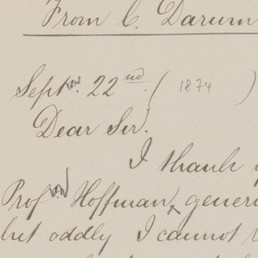 From C. Darwin
Septr. 22nd. (1874)
Dear Sir.
I thank
Prof. Hoffman, generi
but oddly I cannot